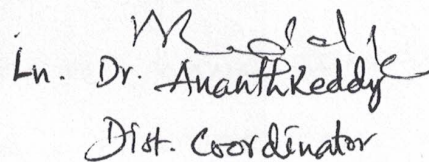 Ln. Dr. AnanthReddy
Dist. Coordinator